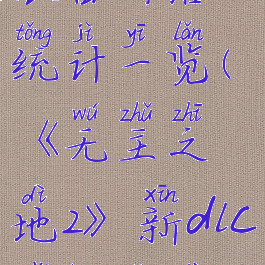 tǒng jì yī lǎn
统计一览(
wú zhǔ zhī
《无主之
dì xīn
地2》新dlc